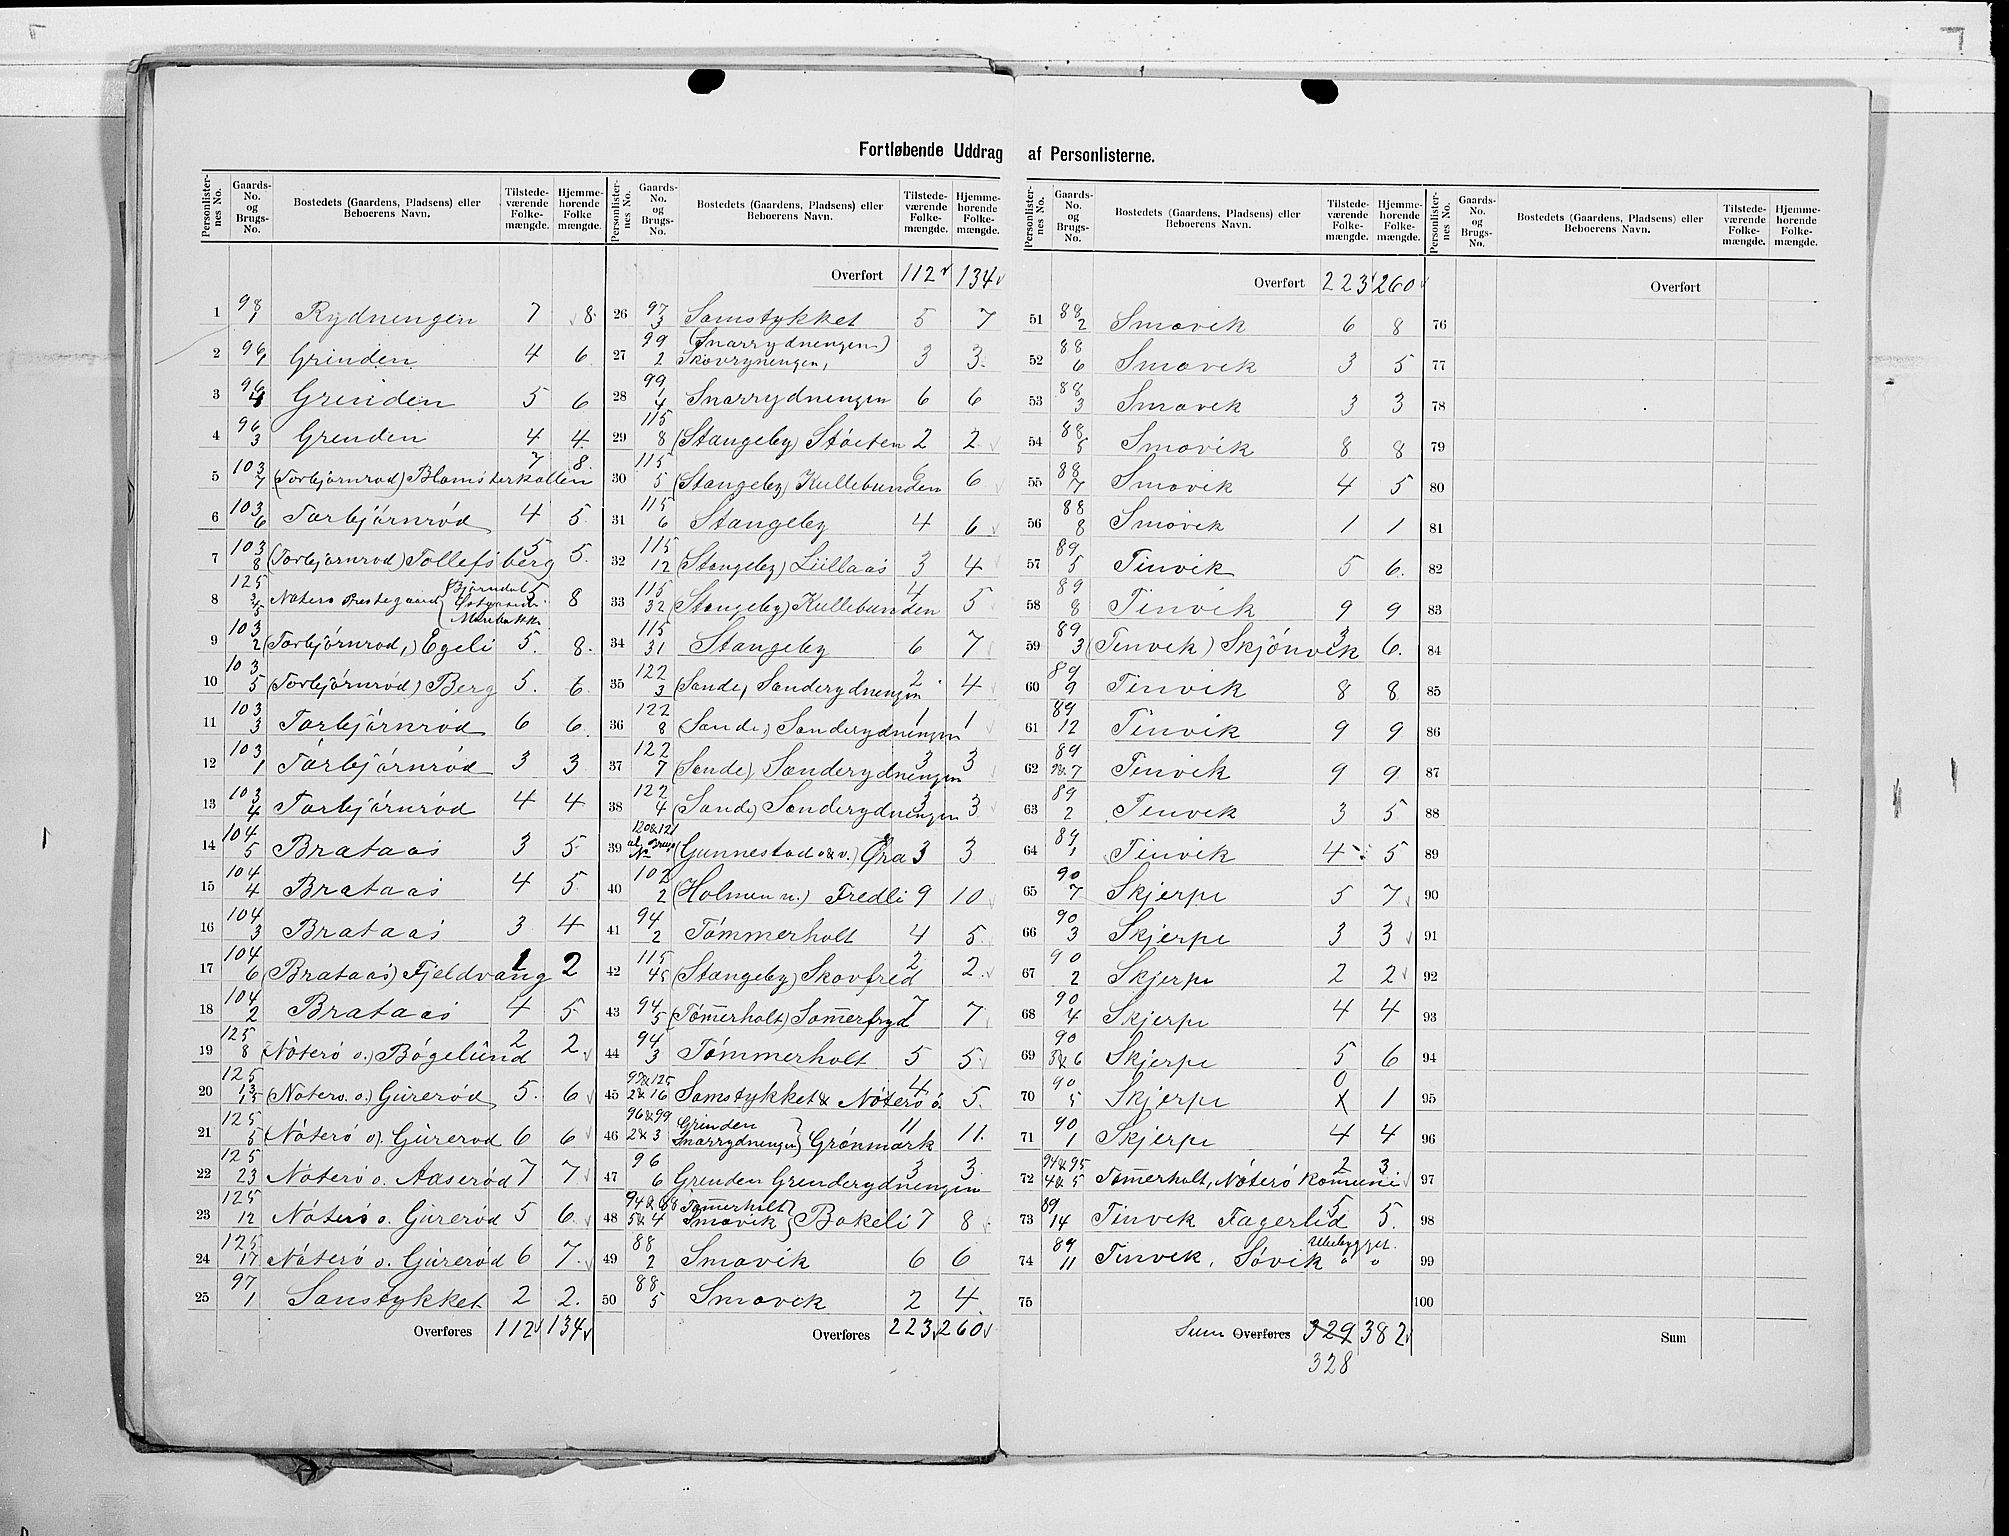 Fortløbende Uddrag af Personlisterne.
Personlister-nes No. Gaards-No. og Brugs-No. Bostedets (Gaardens, Pladsens) eller Beboerens Navn. Tilstede-værende Folke-mængde. Hjemme-hørende Folke mængde.
1 98 1 Rydningen 7 8
2 96 1 Grinden 4 6
3 96 4 Grinden 5 6
4 96 3 Grenden 4 4
5 103 7 (Torbjørnrød) Blomsterkollen 7 8
6 103 6 Torbjørnrød 4 5
7 103 8 (Torbjørnrød) Tollefsberg 5 5
8 125 Nøterø Prestegaard 5 8
9 103 2 (Torbjørnrød,) Egeli 5. 8.
10 103 5 (Torbjørnrød) Berg 5. 6
11 103 3 Torbjørnrød 6 6
12 103 1 Torbjørnrød 3 3
13 103 4 Torbjørnrød 4 4
14 104 5 Brataas 3 5
15 104 4 Brataas 4 5
16 104 3 Brataas 3 4
17 104 6 (Brataas) Fjeldvang 1 2
18 104 2 Brataas 4 5
19 125 8 (Nøterø o.) Bøgelund 2 2
20 125 13 15 (Nøterø. o.) Gürerød 5. 6
21 125 5 (Nøterø o) Gürerød 6 6
22 125 23 Nøterø o. Aaserød 7 7
23 125 12 Nøterø o. Gürerød 5 6
24 125 17 Nøterø o. Gürerød 6 7
25 97 1 Sanstykket 2 2.
Overføres 112 134
Personlister-nes No. Gaards-No. og Brugs-No. Bostedets (Gaardens, Pladsens) eller Beboerens Navn. Tilstede-værende Folke-mængde. Hjemme-hørende Folke-mængde.
Overført 112 134
26 97 3 Samstykket 5 7
27 99 2 (Snarrydningen) Skovryningen, 3 3
28 99 4 Snarrydningen 6 6
29 115 8 (Stangeby) Støiten 2 2
30 115 5 (Stangeby) Kullebunden 6 6
31 115 6 Stangeby 4 6
32 115 12 (Stangeby) Lüllaas 3 4
33 115 32 (Stangeby) Kullebunden 4 5
34 115 31 Stangeby 6 7
35 122 3 (Sande, Sanderydningen 2 4
36 122 8 (Sande) Sanderydningen 1 1
37 122 7 (Sande), Sanderydningen 3 3
38 122 4 (Sande) Sanderydningen 3 3
39 120&121 (Gunnestad o&v.) Øra 3 3
40 102 2 (Holmen n.) Fredli 9 10
41 94 2 Tømmerholt 4 5
42 115 45 (Stangeby) Skovfred 2 2
43 94 5 (Tømerholt) Somerfryd 7 7
44 94 3 Tømmerholt 5 5
45 97&125 2&16 Samstykket & Nøterø ø. 4 5.
46 96&99 2&3 Grinden Snarrydningen } Grønmark 11 11.
47 96 6 Grenden Grenderydningen 3 3
48 94&88 5&4 Tømerholt Smøvik } Bakeli 7 8
49 88 2 Smøvik 6 6
50 88 5 Smøvek 2 4
Overføres 223 260
Personlister-nes No. Gaards-No. og Brugs-No. Bostedets (Gaardens, Pladsens) eller Beboerens Navn. Tilstede-værende Folke-mængde. Hjemme-hørende Folke-mængde.
Overført 223 260
51 88 2 Smøvik 6 8
52 88 6 Smøvik 3 5
53 88 3 Smøvik 3 3
54 88 5 Smøvik 8 8
55 88 7 Smøvik 4 5
56 88 8 Smøvik 1 1
57 89 5 Tinvik 5 6.
58 89 8 Tinvik 9 9
59 89 3 (Tinvek) Skjønvik 3 6.
60 89 9 Tinvik 8 8
61 89 12 Tinvik 9 9
62 89 7 Tinvik 9 9
63 89 2 Tinvek 3 5
64 89 1 Tinvik 4 5
65 90 7 Skjerpe 5 7
66 90 3 Skjerpe 3 3
67 90 2 Skjerpe 2 2
68 90 4 Skjerpe 4 4
69 90 8&6 Skjerpe 5 6
70 90 5 Skjerpe 0 1
71 90 1 Skjerpe 4 4
72 94&95 4&5 Tømerholt, Nøterø Komune 2 3
73 89 14 Tinvek Fagerlid 5 5.
74 89 11 Tinvek, Søvik Ubebygget. 0 0
75
Sum Overføres 329 382
328
Personlister-nes No. Gaards-No. og Brugs-No. Bostedets (Gaardens, Pladsens) eller Beboerens Navn. Tilstede-værende Folke-mængde. Hjemme-hørende Folke-mængde.
Overført
76
77
78
79
80
81
82
83
84
85
86
87
88
89
90
91
92
93
94
95
96
97
98
99
100
Sum